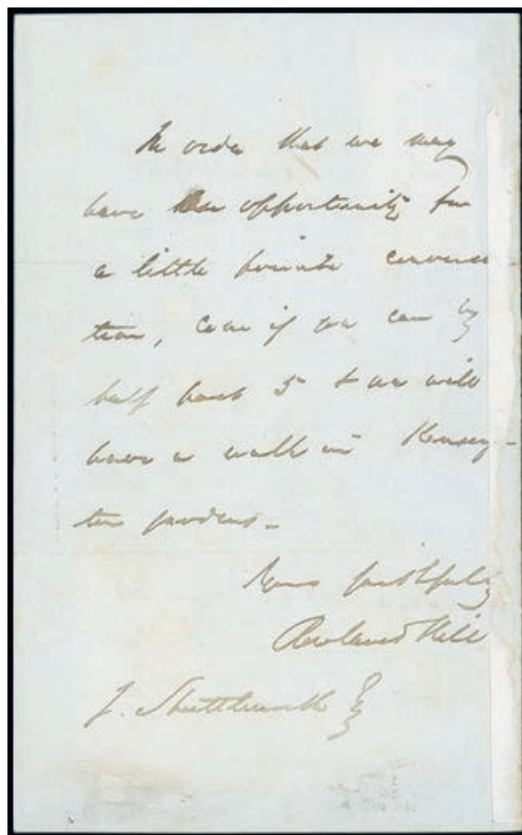 In order that we may
have an opportunity for
a little private conversa
tion, come if you can by
half past 5 & we will
have a walk in Kensing-
ton gardens.
Yours faithfully
Rowland Hill
J. Shuttleworth Esq